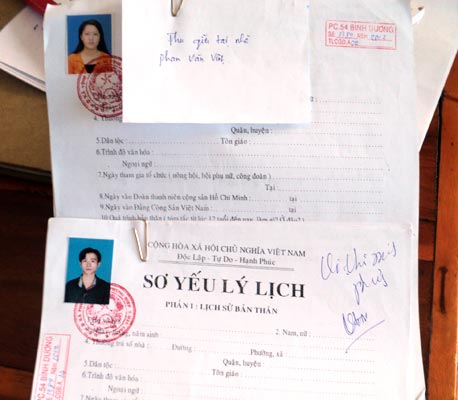 Thu giữ tại nhà
phan Văn Việt
PC 54 BINH DUONG
Quận, huyện :
5.Dân tộc : Tôn giáo:
6.Trình độ văn hóa :
Ngoại ngữ :
7.Ngày tham gia tổ chức ( nông hội, hội phụ nữ, công đoàn )
tại
8.Ngày vào Đoàn thanh niên cộng sản Hồ Chí Minh : tại
9.Ngày vào Đảng Cộng Sản Việt Nam : tại
10.Quá trình bản thân ( tóm tắc từ lúc 12 tuổi đến nay, làm gì? Ở đâu? )
CỘNG HÒA XÃ HỘI CHỦ NGHĨA VIỆT NAM
Độc Lập - Tự Do - Hạnh Phúc
SƠ YẾU LÝ LỊCH
PHẦN I : LỊCH SỬ BẢN THÂN
năm sinh 2. Nam, nữ :
trú số nhà : Đường : Phường, xã
Quận, huyện :
5.Dân tộc : Tôn giáo:
6.Trình độ văn hóa :
Ngoại ngữ
PC 54 BINH DUONG